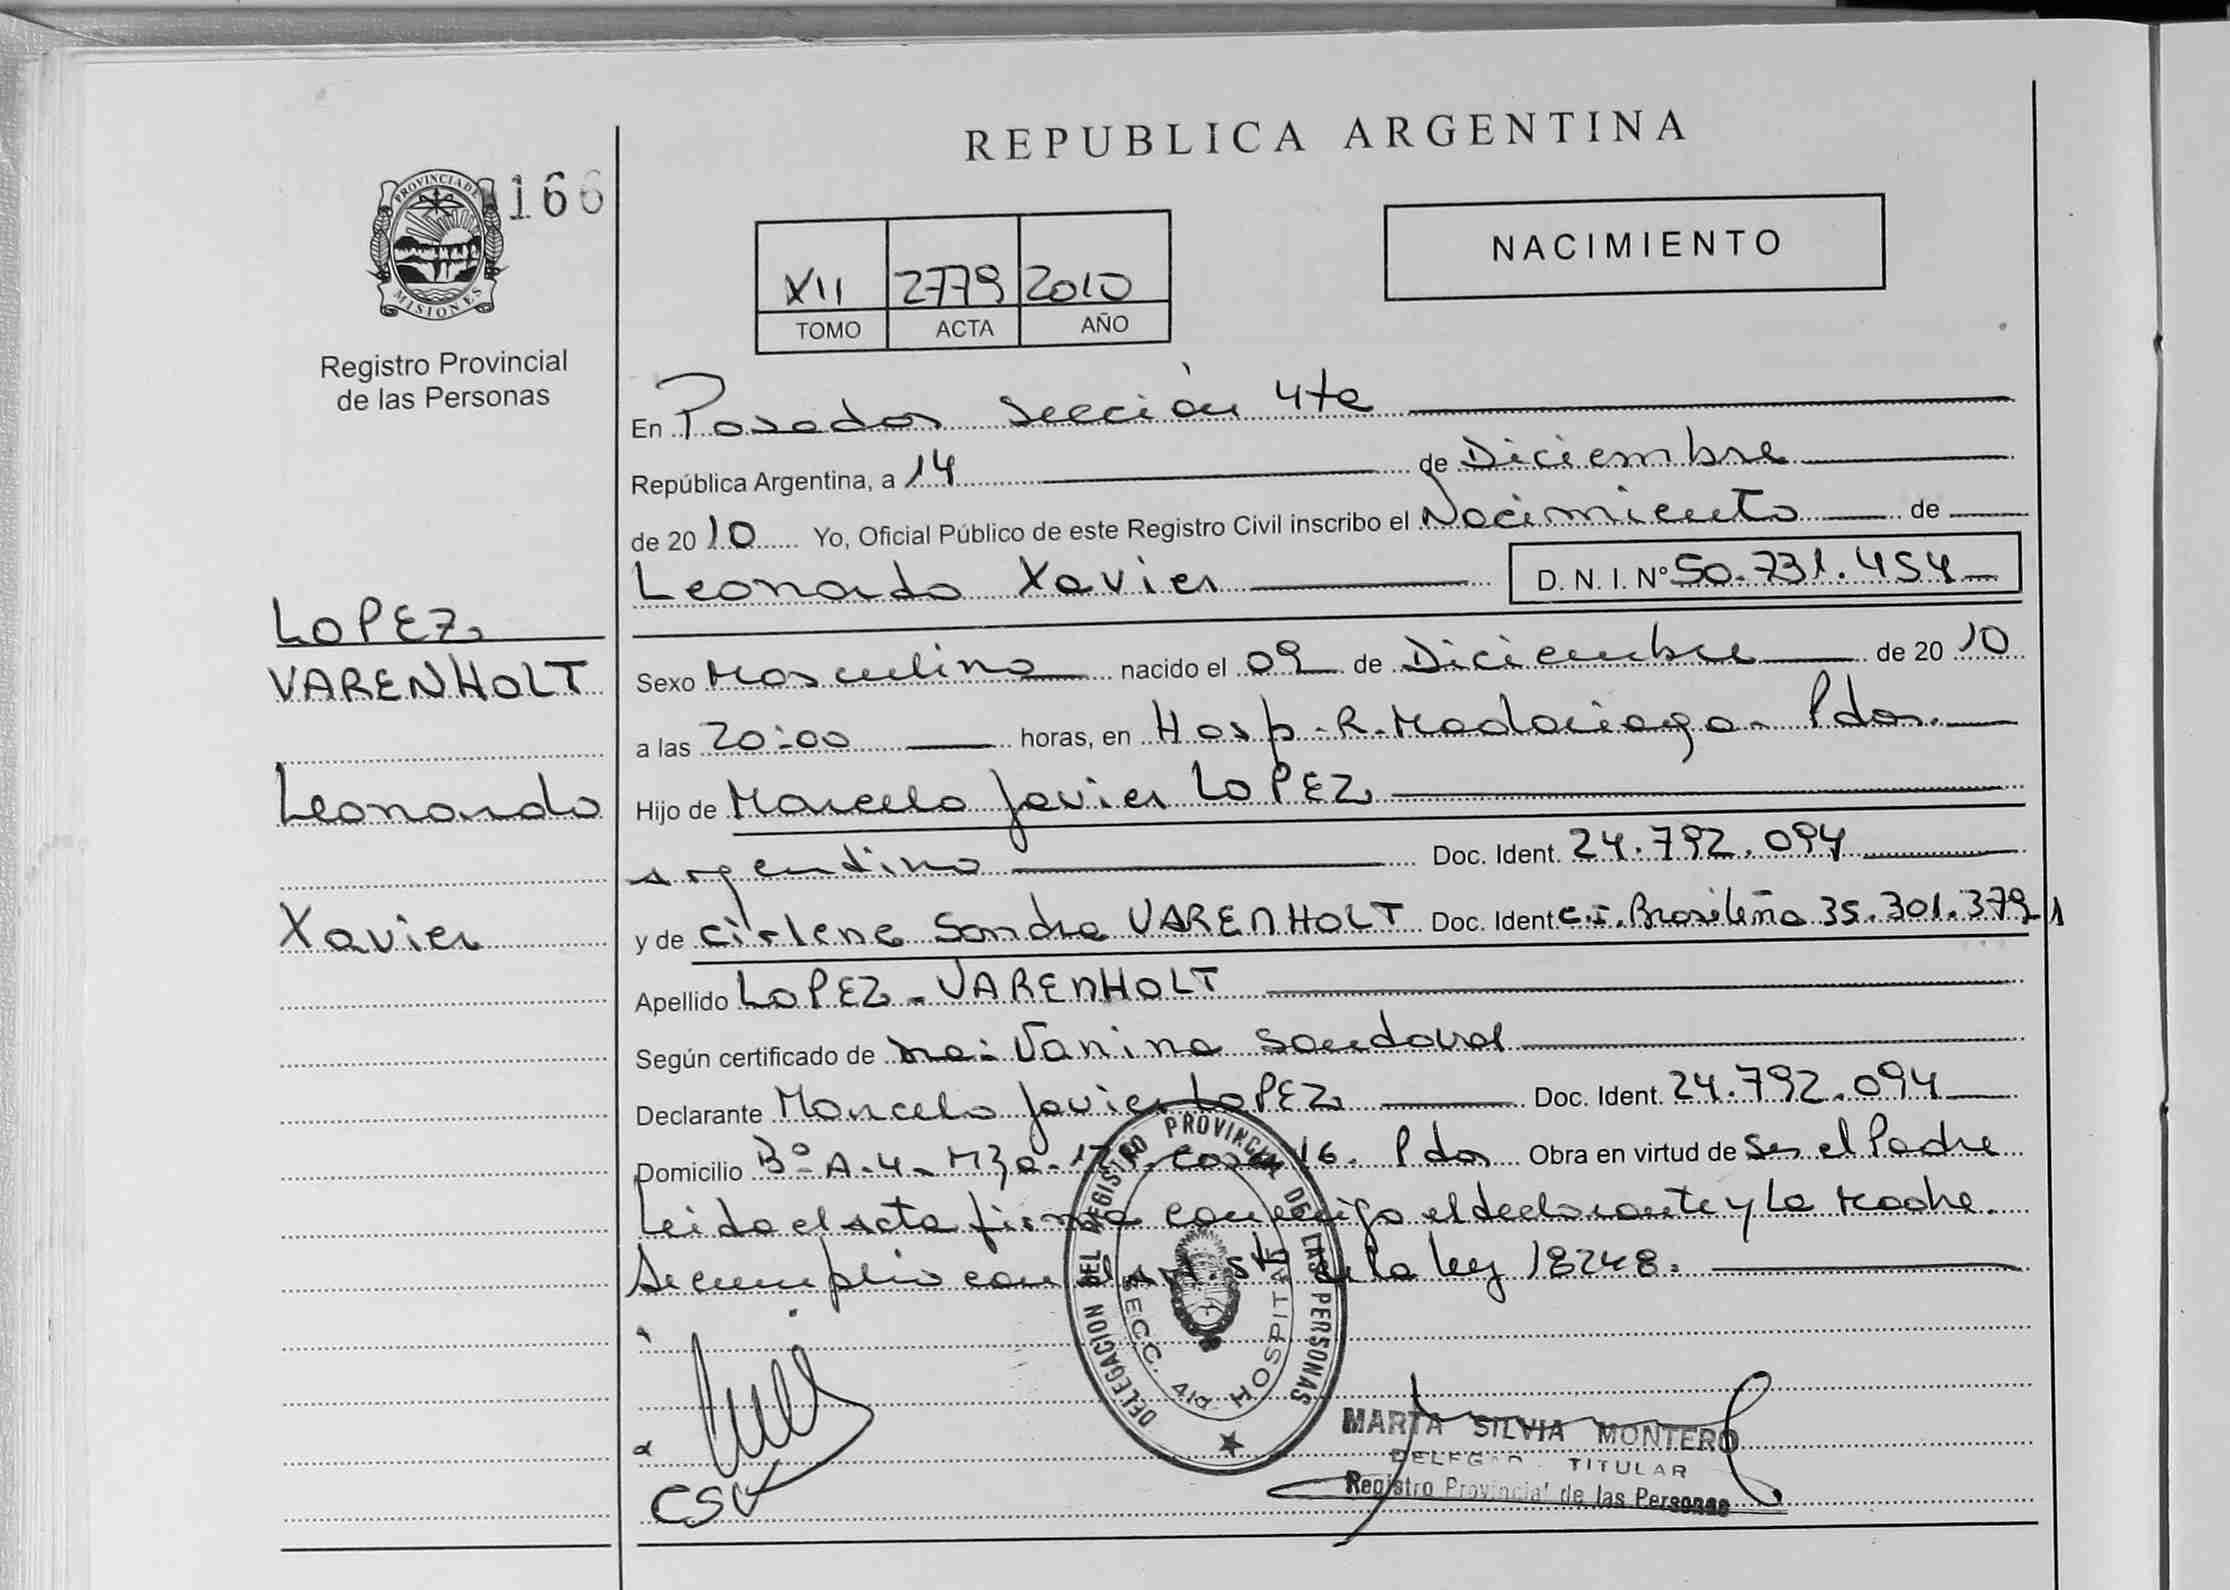 REPUBLICA ARGENTINA
PROVINCIA DE
MISIONES
166
Registro Provincial
de las Personas
NACIMIENTO
XII 2779 2010
TOMO ACTA AÑO
En Posadas Sección 4ta
República Argentina, a 14 de Diciembre
de 2010 Yo, Oficial Público de este Registro Civil inscribo el Nacimiento de
Leonardo Xavier D. N. I. Nº 50.731.454
LOPEZ
VARENHOLT
Leonardo
Xavier
Sexo Masculino nacido el 09 de Diciembre de 2010
a las 20:00 horas, en Hosp. R. Madariaga - Pdas.
Hijo de Marcelo Javier LOPEZ
argentino Doc. Ident. 24.792.094
y de Cirlene Sandra VARENHOLT Doc. Ident C.I. Brasileña 35.301.379 1
Apellido LOPEZ - VARENHOLT
Según certificado de Vanina Sandoval
Declarante Marcelo Javier LOPEZ Doc. Ident. 24.792.094
Domicilio Bº A-4- Mza. casa 16. Pdas Obra en virtud de Ser el Padre
Leida el acta firma conmigo el declarante y La Madre.
Se cumplió con el art. 5to de la ley 18248.
DELEGACION DEL REGISTRO PROVINCIAL DE LAS PERSONAS
SECC. 4ta. HOSPITAL
CSV
MARTA SILVIA MONTERO
TITULAR
Registro Provincial de las Personas